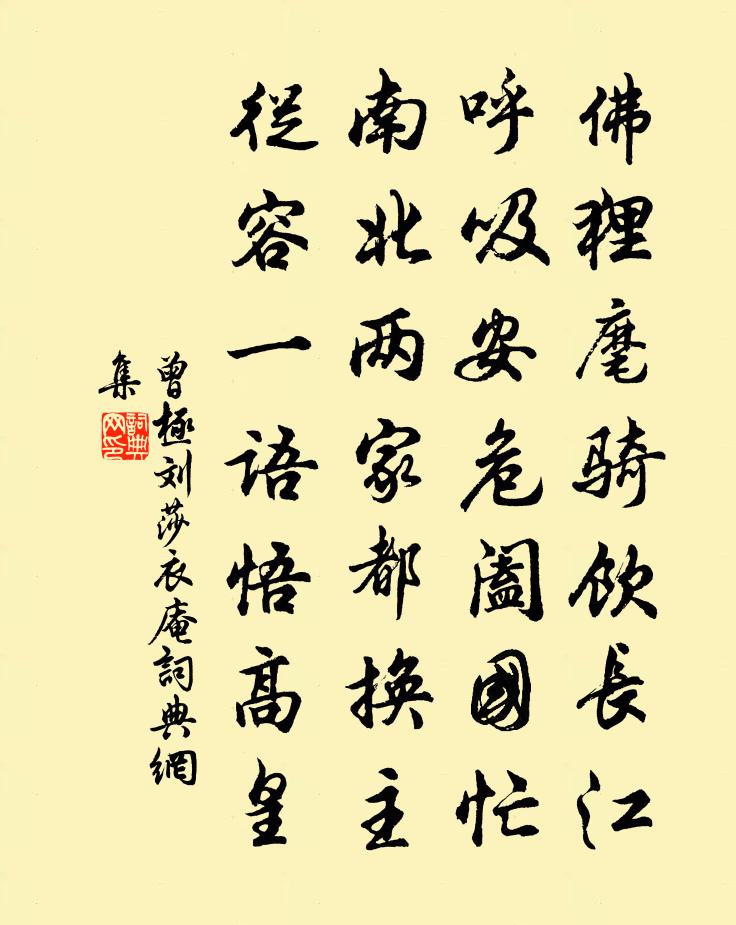 佛狸麾骑饮長江
呼吸安危阖國忙
南北两家都換主
從容一语悟高皇
曾極刘莎衣庵詞典網
集
詞典
网印